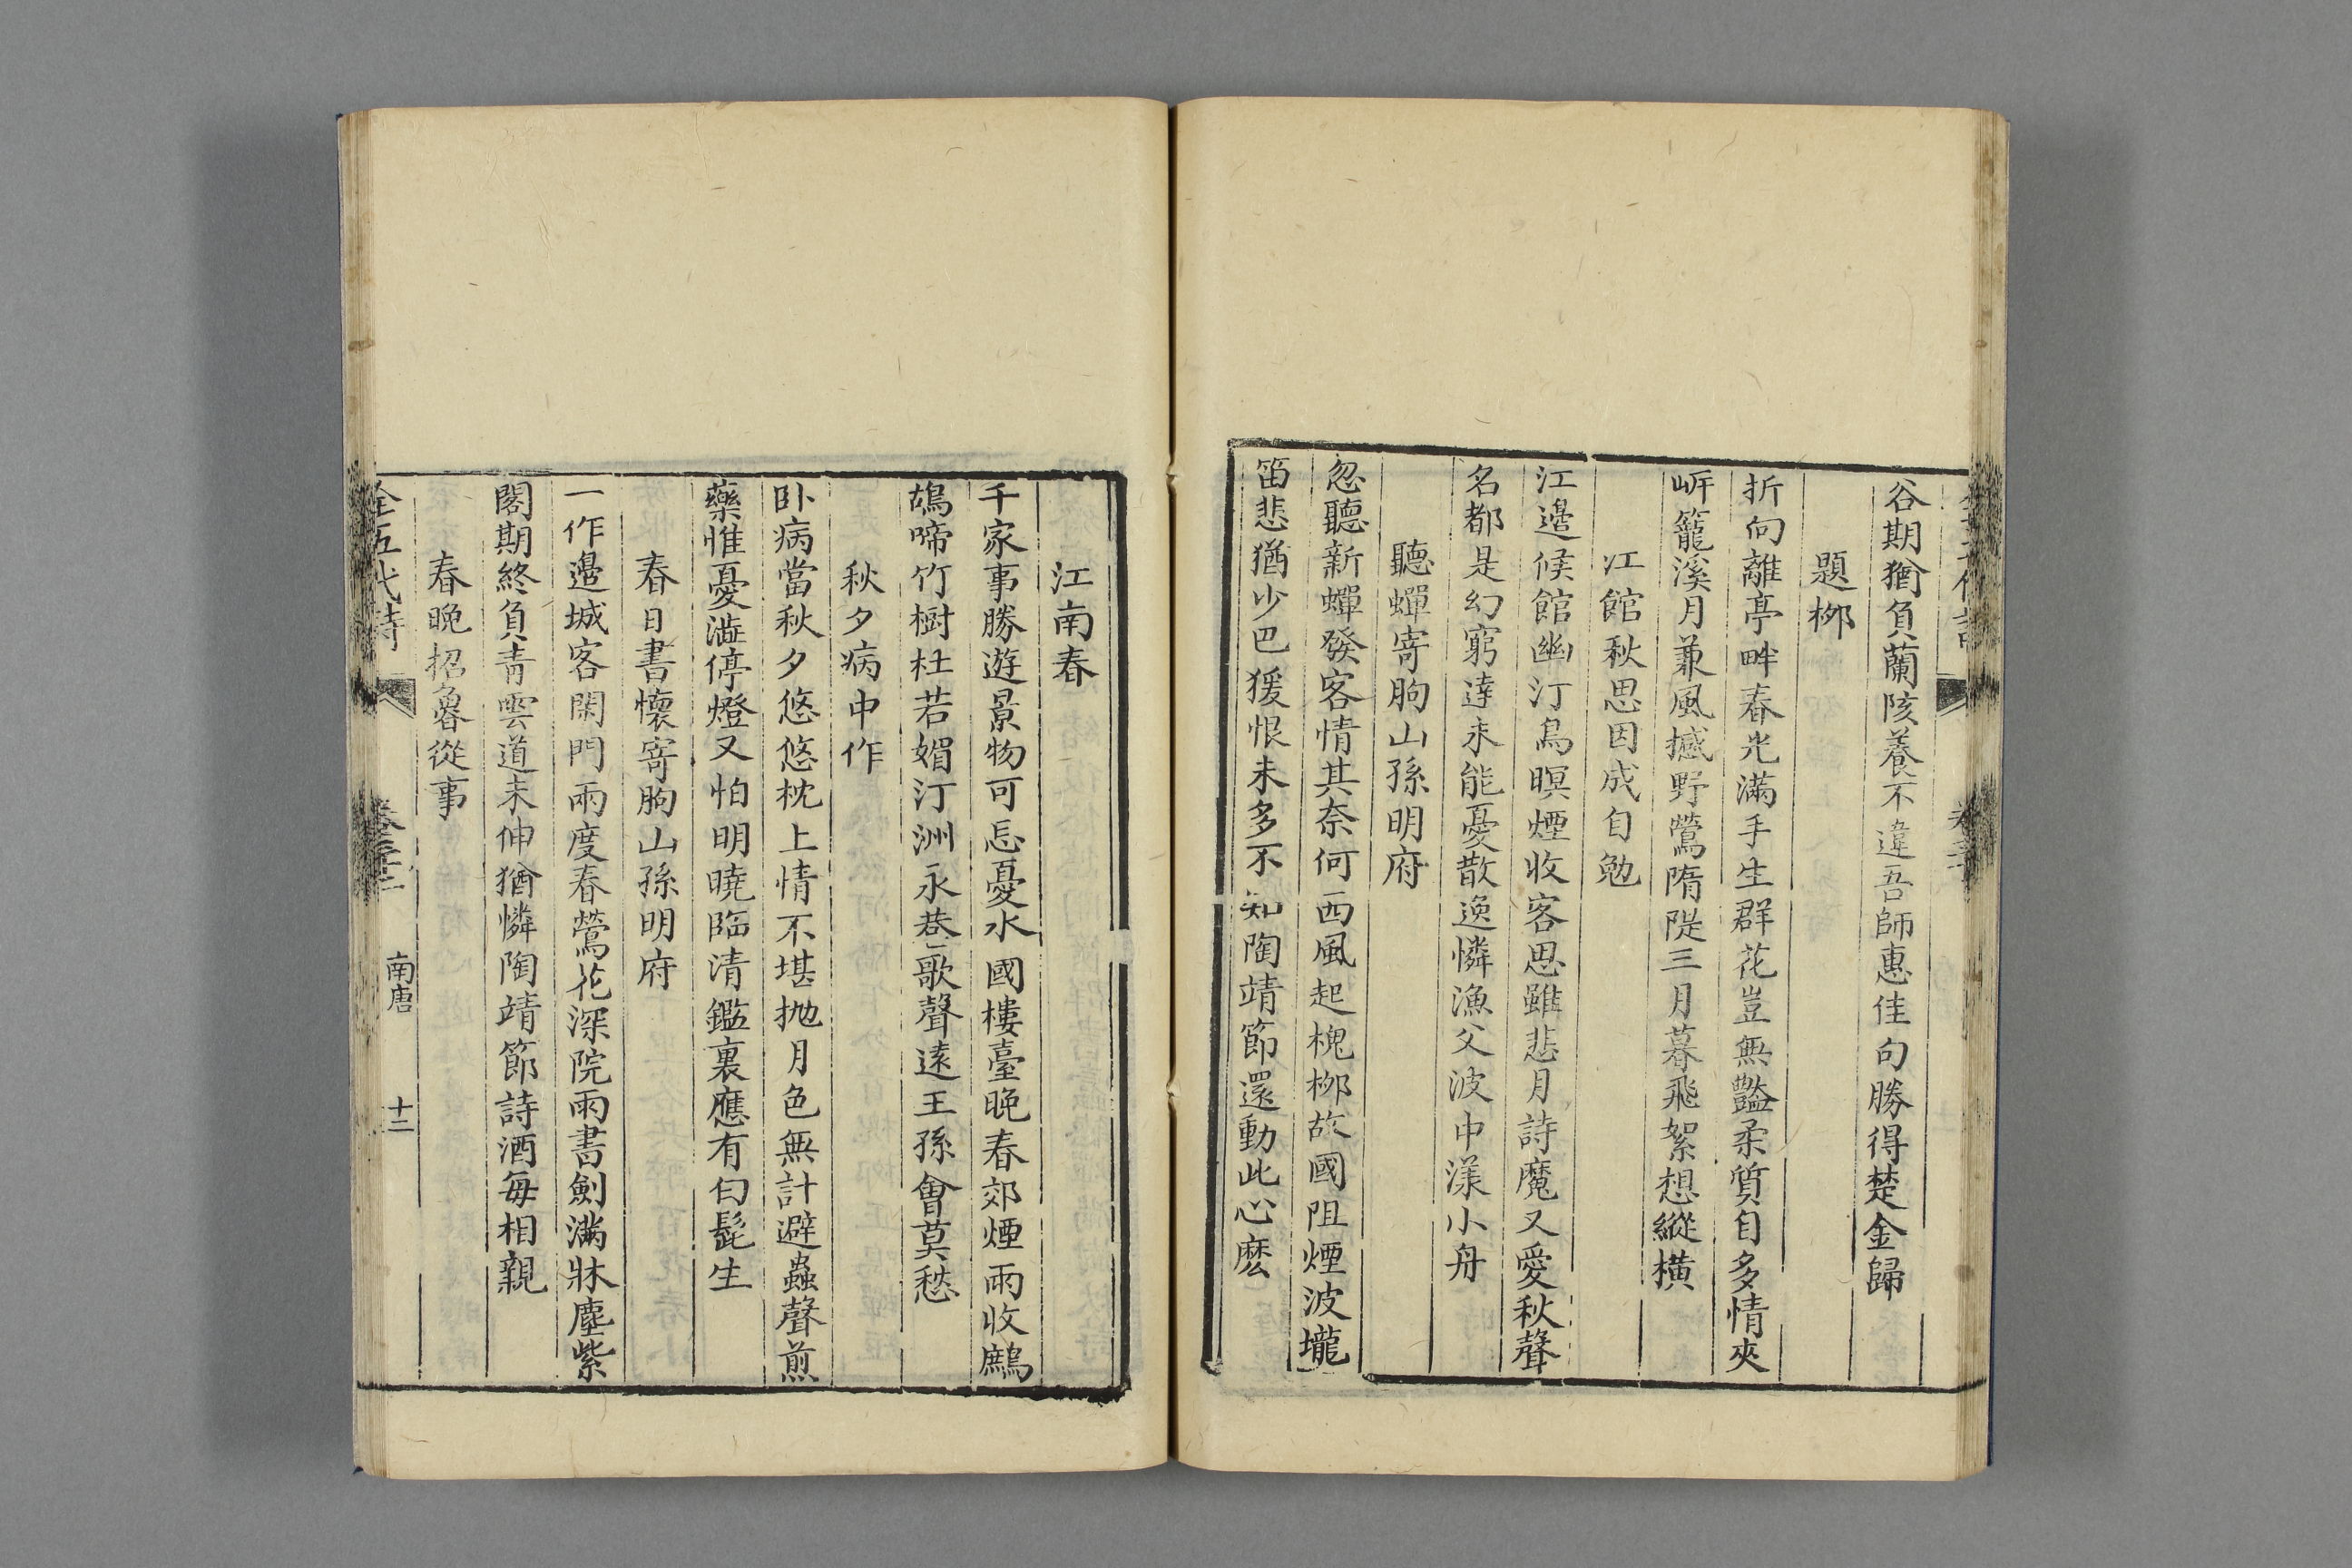 谷期猶負蘭陔養不違吾師惠佳句勝得楚金歸
題柳
折向離亭畔春光滿手生群花豈無豔柔質自多情夾
岍籠溪月兼風撼野鶯隋隄三月暮飛絮想縱橫
江館秋思因成自勉
江邉候館幽汀鳥暝煙收客思雖悲月詩魔又愛秋聲
名都是幻窮達未能憂散逸憐漁父波中漾小舟
聽蟬寄朐山孫明府
忽聽新蟬發客情其奈何西風起槐柳故國阻煙波壠
笛悲猶少巴猨恨未多不知陶靖節還動此心麽
江南春
千家事勝遊景物可忘憂水國樓臺晚春郊煙雨收鷓
鴣啼竹樹杜若媚汀洲永巷歌聲遠王孫會莫愁
秋夕病中作
卧病當秋夕悠悠枕上情不堪抛月色無計避蟲聲煎
藥惟憂澁停燈又怕明曉臨清鑑裏應有白髭生
春日書懷寄朐山孫明府
一作邉城客閑門兩度春鶯花深院雨書劍滿牀塵紫
閣期終負青雲道未伸猶憐陶靖節詩酒每相親
春晚招魯從事
全五代詩
卷三十二
南唐
十二